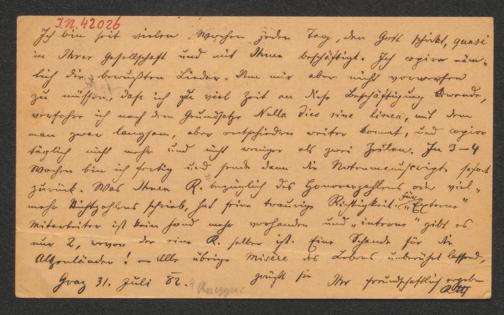 I.N. 42026
Ich bin seit vielen Wochen jeden Tag, den Gott schickt, quasi
in Ihrer Gesellschaft und mit Ihnen beschäftigt. Ich copire näm-
lich die bewußten Lieder. Um mir aber nicht vorwerfen
zu müssen, daß ich zu viel Zeit an diese Beschäftigung verwende,
verfahre ich nach dem Grundsatze Nulla dies sine linea, mit dem
man zwar langsam, aber entschieden weiter kommt, und copire
täglich nicht mehr und nicht weniger als zwei Zeilen. In 3-4
Wochen bin ich fertig und sende dann die Notenmanuscripte sofort
zurück. Was Ihnen R. bezüglich des Honorarzahlens oder viel-
mehr Nichtzahlens schrieb, hat seine traurige Richtigkeit. Für "Externe"
Mitarbeiter ist kein Fond mehr vorhanden und "interne" gibt es
nur 2, wovon der eine R. selber ist. Eine Schande für die
Alpenländer! — Alle übrige Misère des Lebens
Graz 31. Juli 82. grüßt Sie Ihr freundschaftlich ergebener